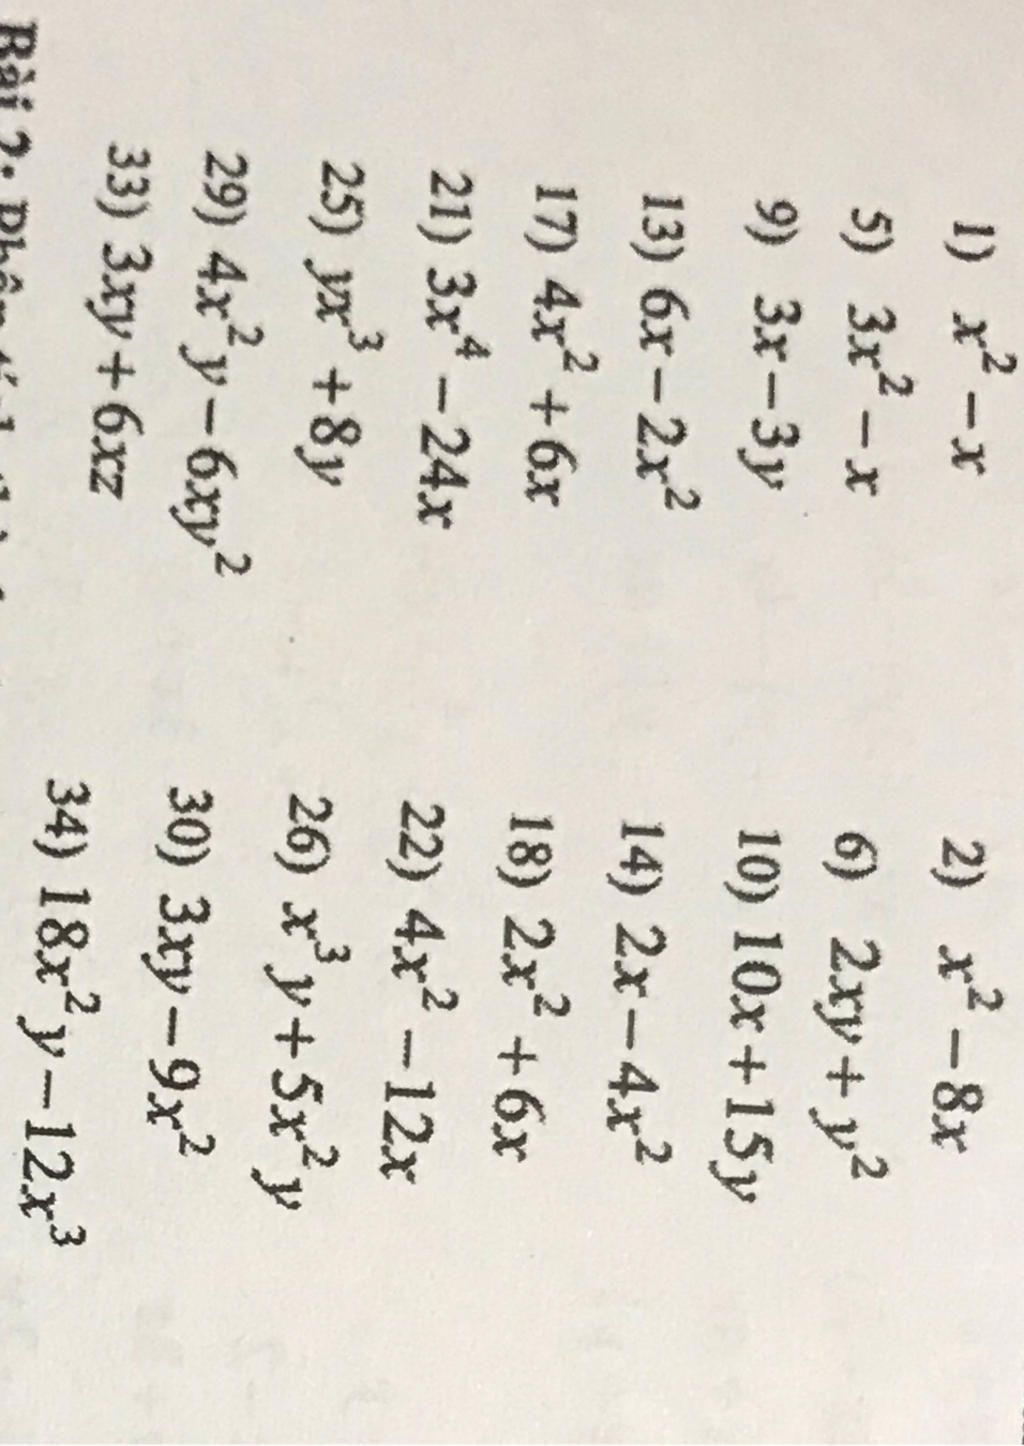 1) x² – x 2) x² – 8x
5) 3x² – x 6) 2xy + y²
9) 3x – 3y 10) 10x + 15y
13) 6x – 2x² 14) 2x – 4x²
17) 4x² + 6x 18) 2x² + 6x
21) 3x⁴ – 24x 22) 4x² – 12x
25) yx³ + 8y 26) x³y + 5x²y
29) 4x²y – 6xy² 30) 3xy – 9x²
33) 3xy + 6xz 34) 18x²y – 12x³
Bài 2: